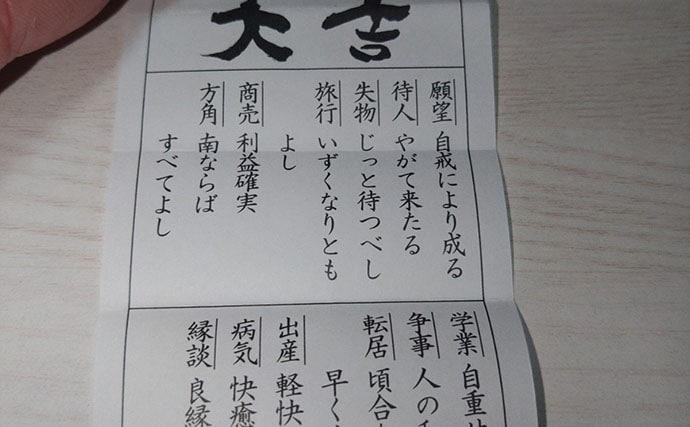 大吉
願望 自戒により成る
待人 やがて来たる
失物 じっと待つべし
旅行 いずくなりとも
よし
商売 利益確実
方角 南ならば
すべてよし
学業 自重
争事 人の
転居 頃合
早く
出産 軽快
病気 快癒
縁談 良縁